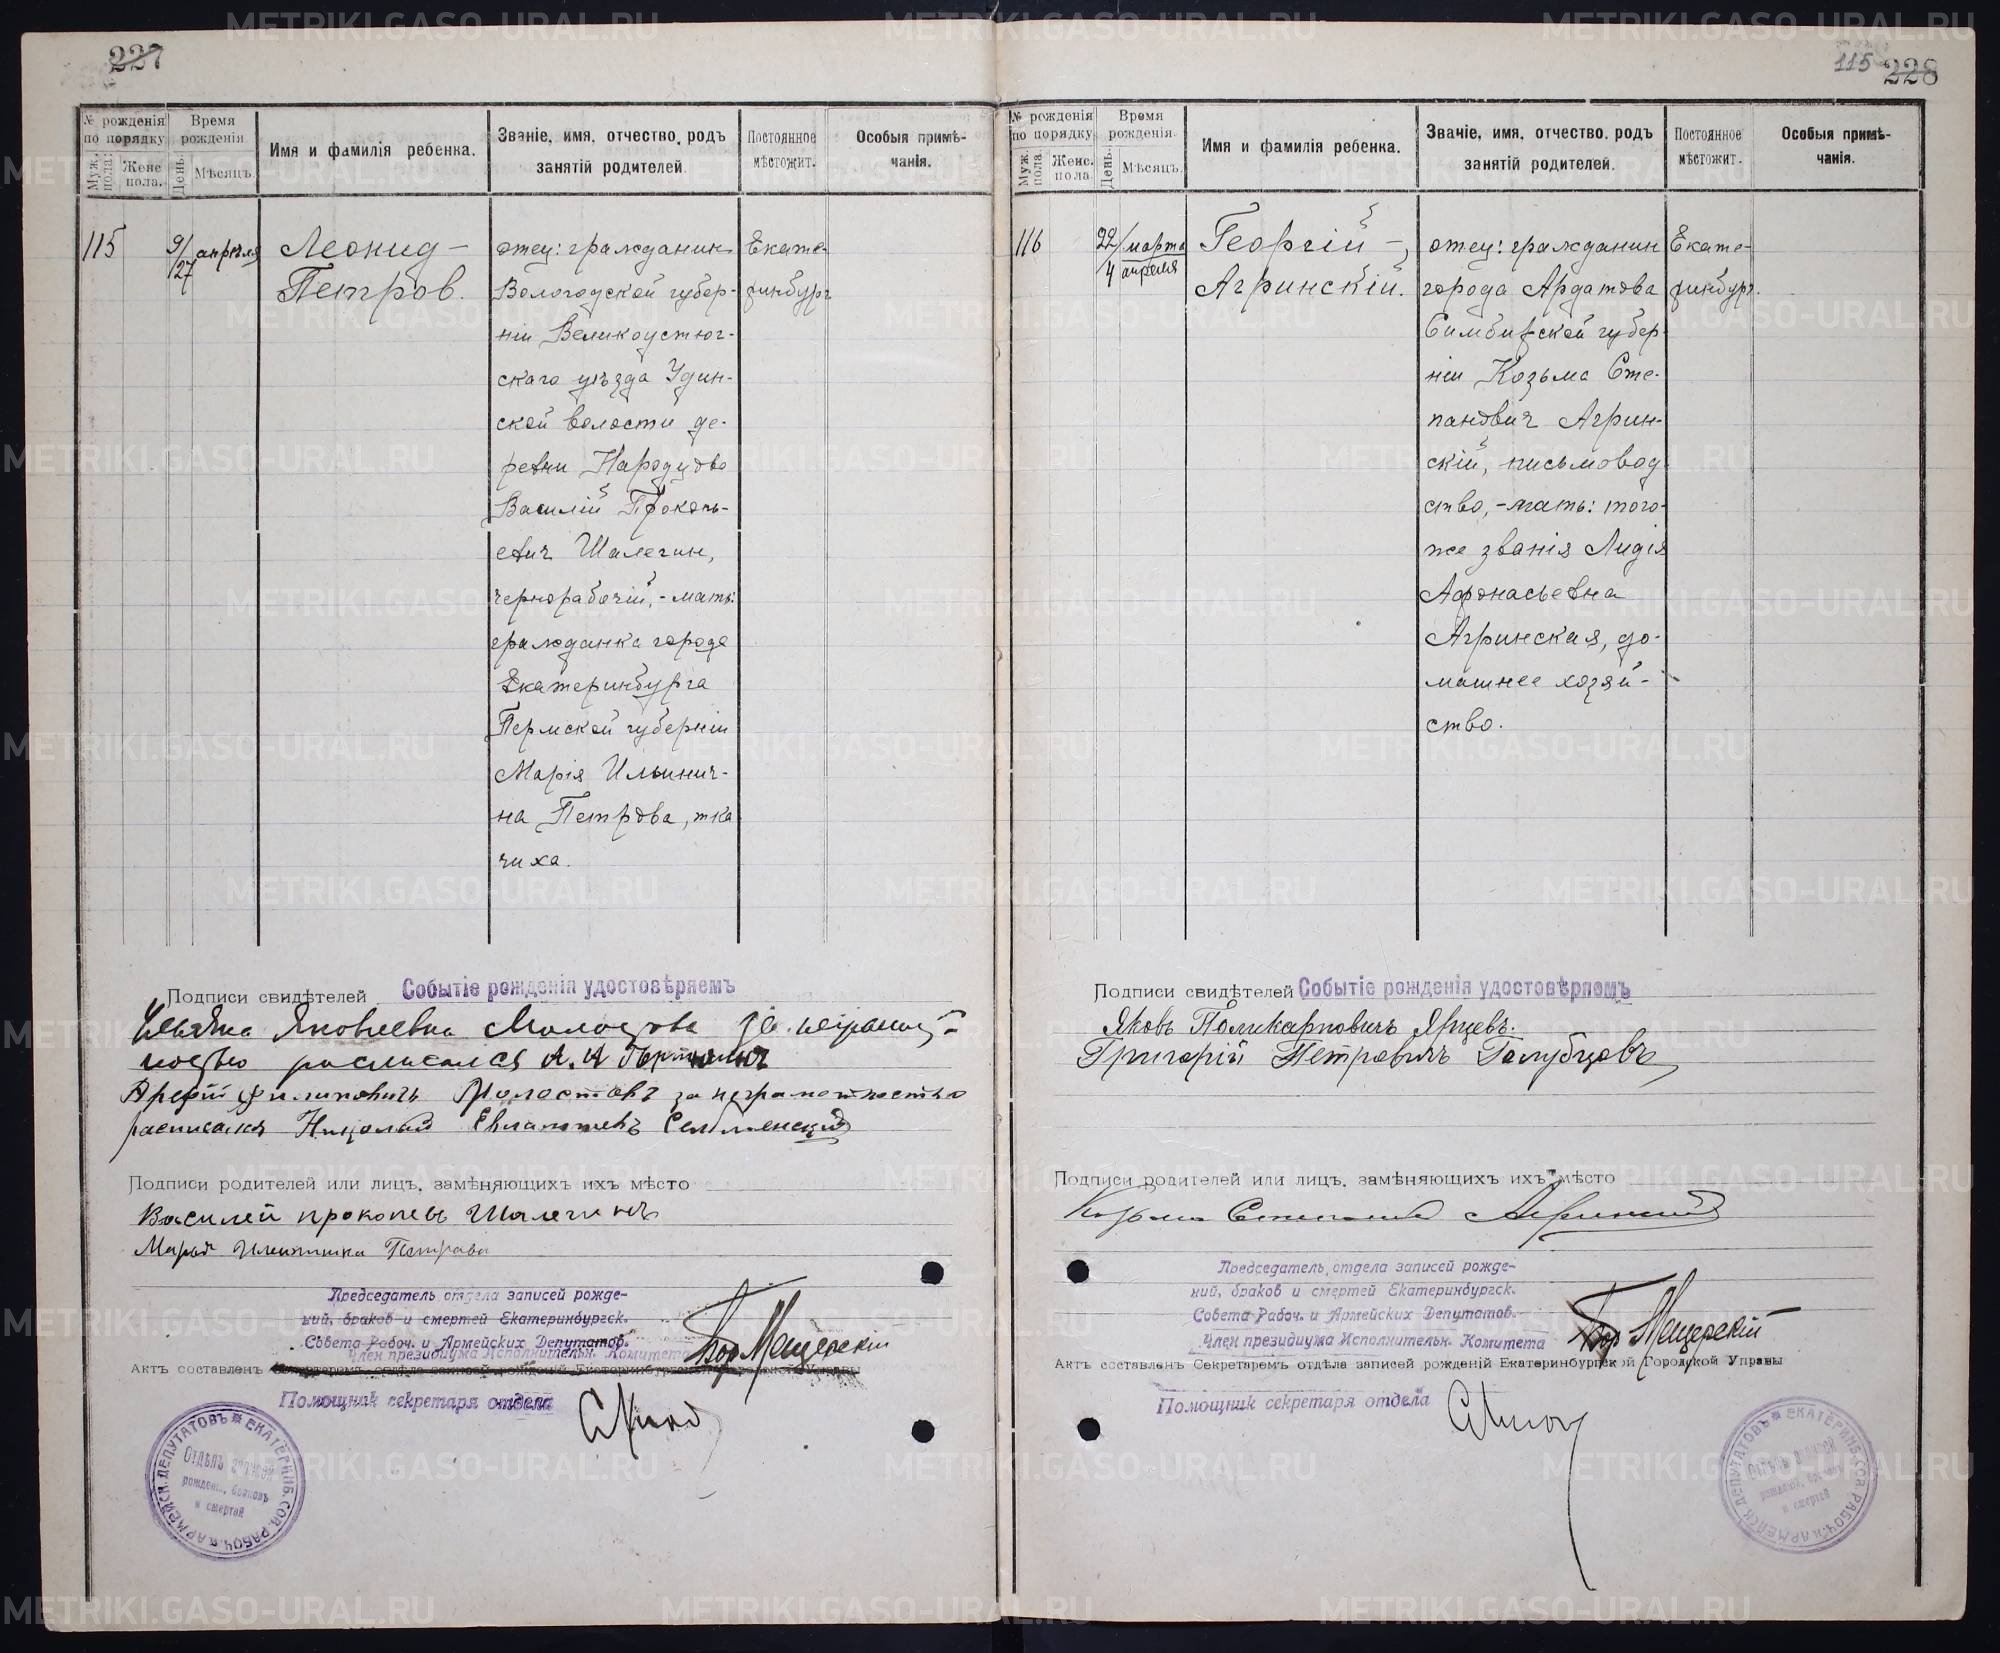 227
№ рожденія по порядку
Муж. пола.
Женс пола.
Время рожденія
День.
Мѣсяцъ.
Имя и фамилія ребенка.
Званіе, имя, отчество, родъ занятій родителей.
Постоянное мѣстожит.
Особыя примѣ-
чанія.
115
9/27 апрѣля
Леонид –
Петров.
отец: гражданин
Вологодской губер-
ніи Великоустюг-
скаго уѣзда Удин-
ской волости де-
ревни
Василій Прокопь-
евич Шалегин,
чернорабочій, – мать:
гражданка города
Екатеринбурга
Пермской губерніи
Марія Ильинич-
на Петрова, тка
чиха.
Екате-
ринбург
Подписи свидѣтелей Событіе рожденія удостовѣряемъ
Яковлевна
росписался А. И
Филиповичъ за неграмотностью
росписался Николай
Подписи родителей или лицъ, замѣняющихъ ихъ мѣсто
Василей прокопевъ Шалегинъ
Марья Петрова
Председатель отдела записей рожде-
ний, браков и смертей Екатеринбургск.
Совета Рабоч. и Армейских Депутатов.
Член президиума Исполнительн. Комитета
Актъ составленъ Секретаремъ отдѣла записей рожденій Екатеринбургской Городской Управы
Помощник секретаря отдела
ЕКАТЕРИНБ. СОВ. РАБОЧ. и АРМЕЙСК. ДЕПУТАТОВЪ
Отдѣлъ записей
рожденій, браковъ
и смертей
115 228
№ рожденія по порядку
Муж. пола.
Женс. пола.
Время рожденія.
День.
Мѣсяцъ.
Имя и фамилія ребенка.
Званіе, имя, отчество, родъ занятій родителей.
Постоянное мѣстожит.
Особыя примѣ-
чанія.
116
22/марта
4 апреля
Георгій –
Агринскій.
отец: гражданин
города Ардатова
Симбирской губер-
ніи Козьма Сте-
панович Агрин-
скій, письмовод
ство, – мать: того-
же званія Лидія
Афонасьевна
Агринская, до-
машнее хозяй-
ство.
Екате-
ринбург.
Подписи свидѣтелей Событіе рожденія удостовѣряемъ
Яковъ Поликарповичъ Ярцевъ.
Григорій Петровичъ Голубцовъ
Подписи родителей или лицъ, замѣняющихъ ихъ мѣсто
Козьма Степанов Агринский
Председатель отдела записей рожде-
ний, браков и смертей Екатеринбургск.
Совета Рабоч. и Армейских Депутатов.
Член президиума Исполнительн. Комитета
Актъ составленъ Секретаремъ отдѣла записей рожденій Екатеринбургской Городской Управы
Помощник секретаря отдела
ЕКАТЕРИНБ. СОВ. РАБОЧ. и АРМЕЙСК. ДЕПУТАТОВЪ
Отдѣлъ записей
рожденій, браковъ
и смертей
METRIKI.GASO-URAL.RU